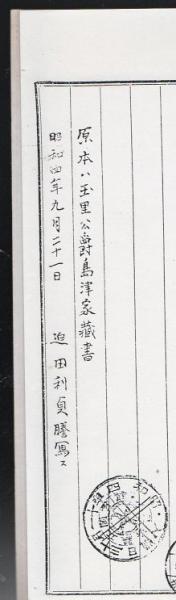 原本ハ玉里公爵島津家藏書
昭和四年九月二十一日　迫田利貞謄寫ス